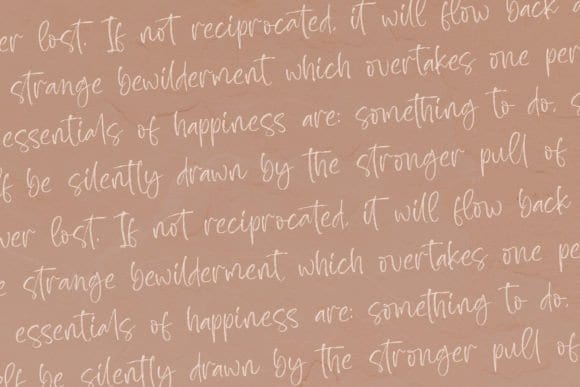 ver lost. If not reciprocated, it will flow back a
strange bewilderment which overtakes one per
essentials of happiness are: something to do, s
lf be silently drawn by the stronger pull of
ver lost. If not reciprocated, it will flow back
e strange bewilderment which overtakes one pe
essentials of happiness are: something to do,
lf be silently drawn by the stronger pull of